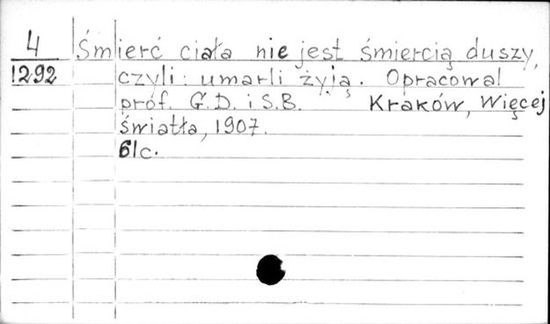 4 Śmierć ciała nie jest śmiercią duszy,
1292 czyli: umarli żyją. Opracowal
prof. G.D. i S.B. Kraków, Więcej
światła, 1907.
61c.